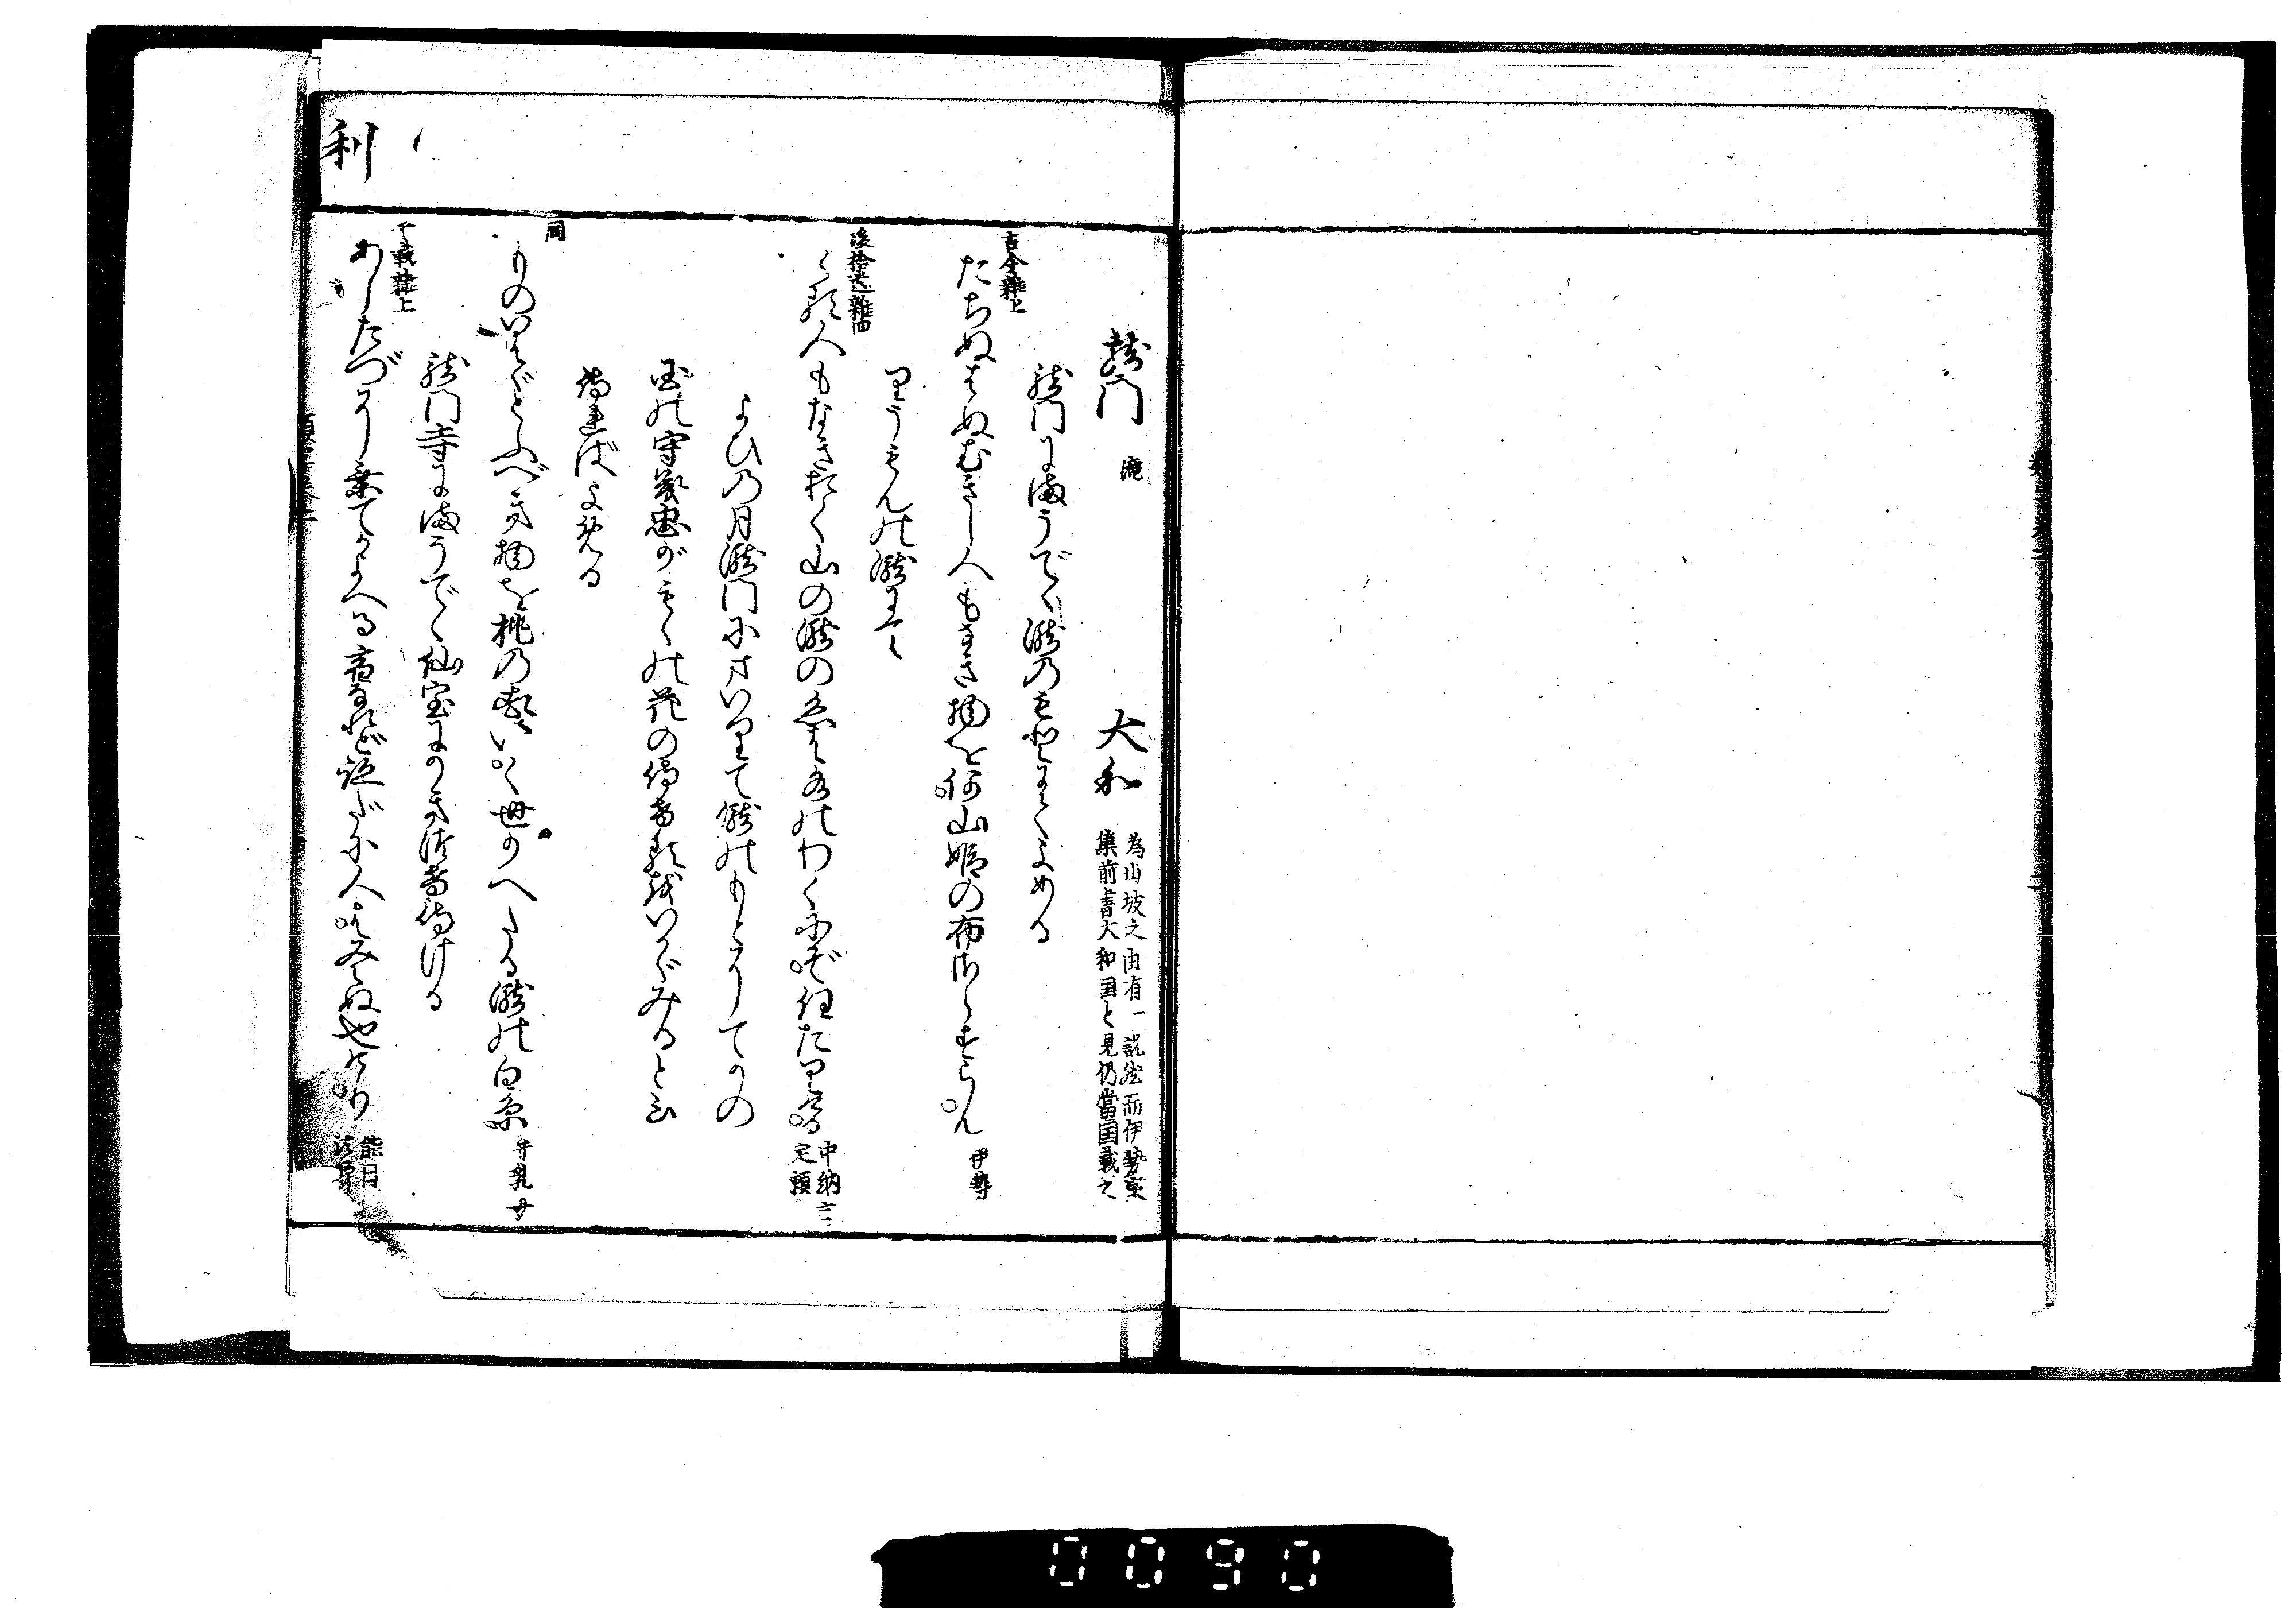 利
龍門 滝 大和 為山城之由有一説然而伊勢家
集前書大和国と見仍當国載之
龍門にまうでゝ瀧のもとにてよめる
古今雑上
たちぬはぬきぬきし人もなき物を何山姫の布さらすらん 伊勢
りうもんの瀧にて
後拾遺雑四
くる人もなきおく山の瀧の糸は水のわくにぞ任たりける 中納言
定頼
よひの月瀧門にまいりて瀧のもとにてかの
国の守義忠がもゝの花の侍けるをいかゞみるとと
侍ければよめる
同
ものいはゞとふべき物を桃の花いく世かへたる瀧の白糸 弁乳母
龍門寺にまうでゝ仙室にかき付侍ける
千載雑上
あしたづにのりてかよへる宿なれど跡だに人はみえぬ也けり 能因
法師
0090